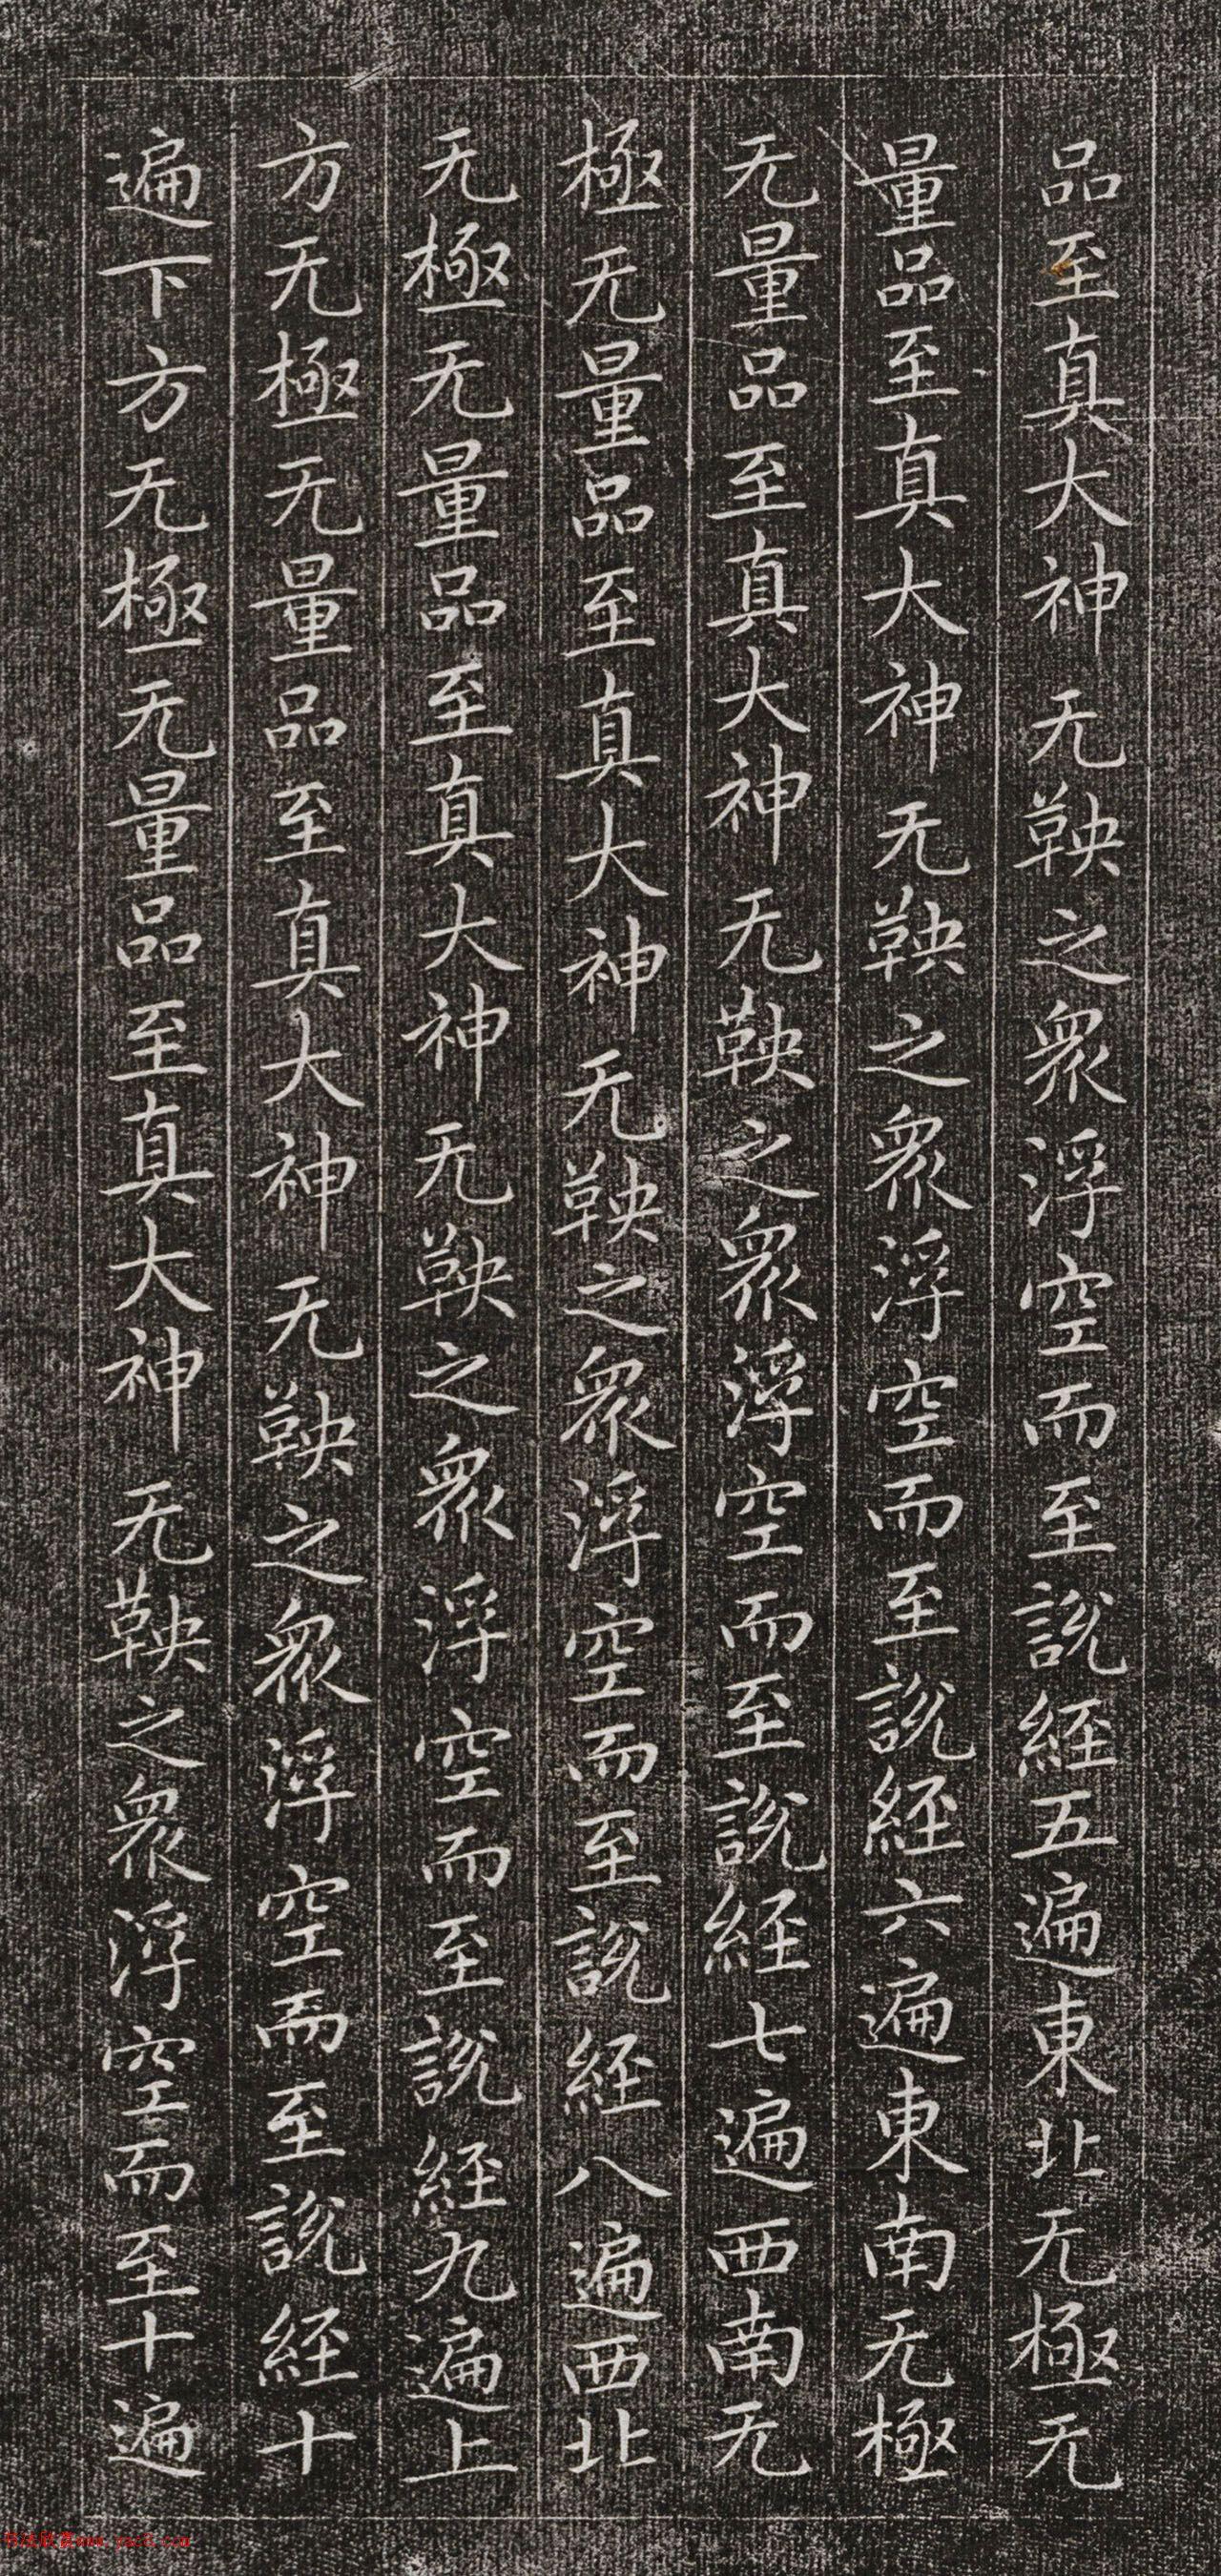 品至真大神无鞅之衆浮空而至說經五遍東北无極无
量品至真大神无鞅之衆浮空而至說經六遍東南无極
无量品至真大神无鞅之衆浮空而至說經七遍西南无
極无量品至真大神无鞅之衆浮空而至說經八遍西北
无極无量品至真大神无鞅之衆浮空而至說經九遍上
方无極无量品至真大神无鞅之衆浮空而至說經十
遍下方无極无量品至真大神无鞅之衆浮空而至十遍
书法欣赏www.yac8.com